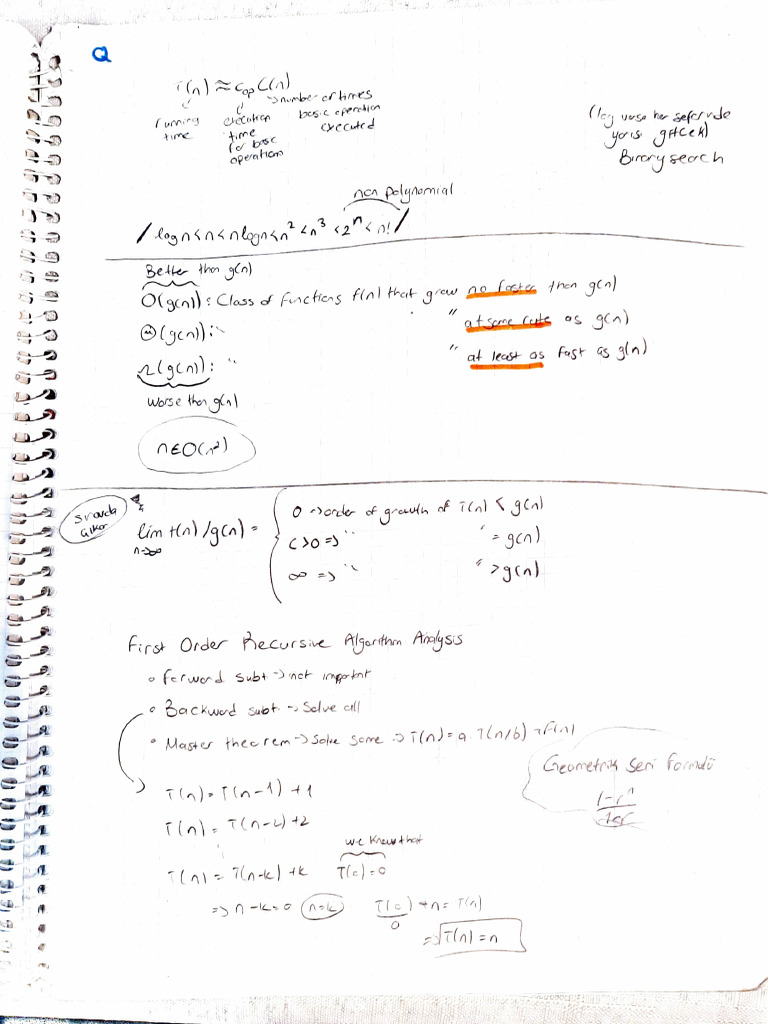 Q
T(n) ≈ Cop C(n)
running time
execution time for basic operations
number of times basic operation executed
(log varsa her seferinde
yarısı gitcek)
Binary search
non polynomial
/ log n < n < n log n < n² < n³ < 2ⁿ < n! /
Better than g(n)
O(g(n)): Class of functions f(n) that grow no faster than g(n)
Θ(g(n)): " " at same rate as g(n)
Ω(g(n)): " " at least as fast as g(n)
worse than g(n)
n ∈ O(n²)
Sınavda
çıkar
lim t(n)/g(n) =
n→∞
0 → order of growth of T(n) < g(n)
c>0 => " " = g(n)
∞ => " " > g(n)
First Order Recursive Algorithm Analysis
• Forward subt → not important
• Backward subt. → Solve all
• Master theorem → Solve some → T(n) = a.T(n/b) + F(n)
Geometrik Seri Formülü
1-rⁿ
T(n) = T(n-1) + 1
T(n) = T(n-2) + 2
we know that
T(n) = T(n-k) + k T(0) = 0
=> n-k=0 n=k T(0) + n = T(n)
0
=> T(n) = n